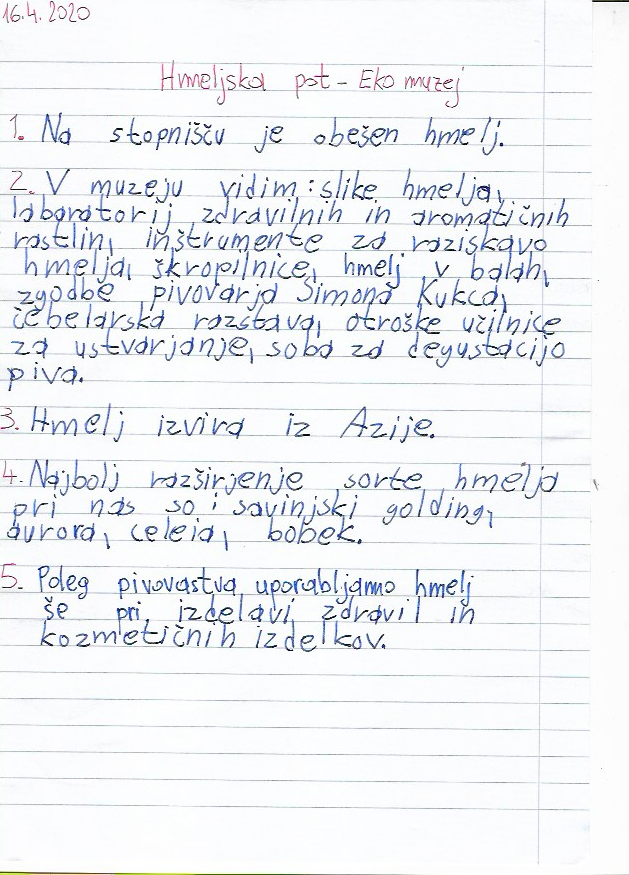 16.4.2020
Hmeljska pot - Eko muzej
1. Na stopnišču je obešen hmelj.
2. V muzeju vidim: slike hmelja,
laboratorij zdravilnih in aromatičnih
rastlin, inštrumente za raziskavo
hmelja, škropilnice, hmelj v balah,
zgodbe pivovarja Simona Kukca,
čebelarska razstava, otroške učilnice
za ustvarjanje, soba za degustacijo
piva.
3. Hmelj izvira iz Azije.
4. Najbolj razširjenje sorte hmelja
pri nas so: savinjski golding,
aurora, celeia, bobek.
5. Poleg pivovastva uporabljamo hmelj
še pri izdelavi zdravil in
kozmetičnih izdelkov.